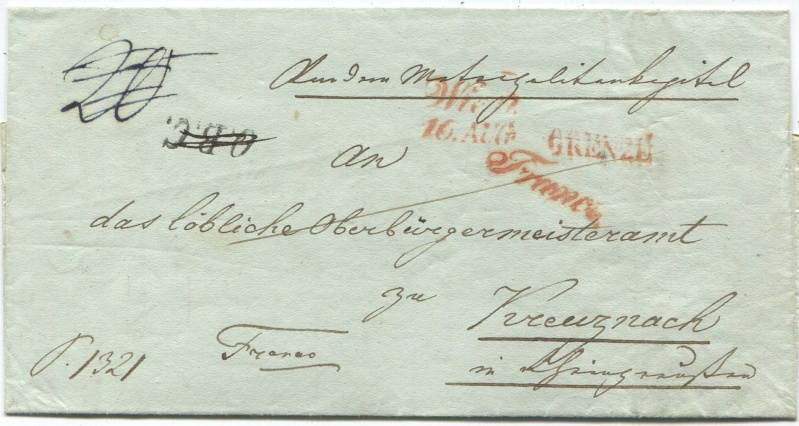 20
Aus dem Metropolitankapitel
Wien
16. AUG.
GRENZE
Franco
an
das löbliche Oberbürgermeisteramt
zu
Kreuznach
in Rheinpreußen
Franco
1321